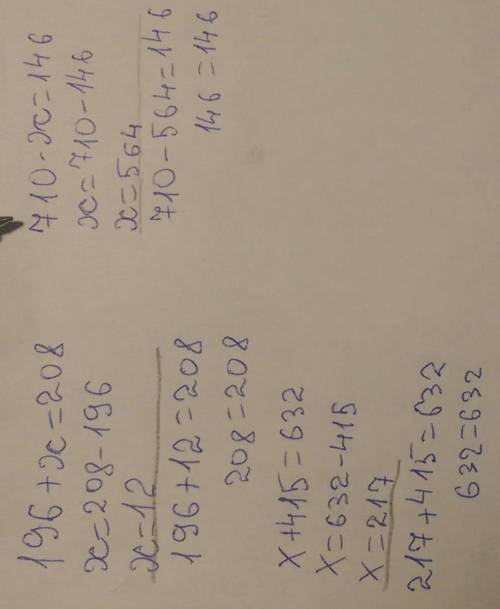 196+x=208
x=208-196
x=12
196+12=208
208=208
x+415=632
x=632-415
x=217
217+415=632
632=632
710-x=146
x=710-146
x=564
710-564=146
146=146